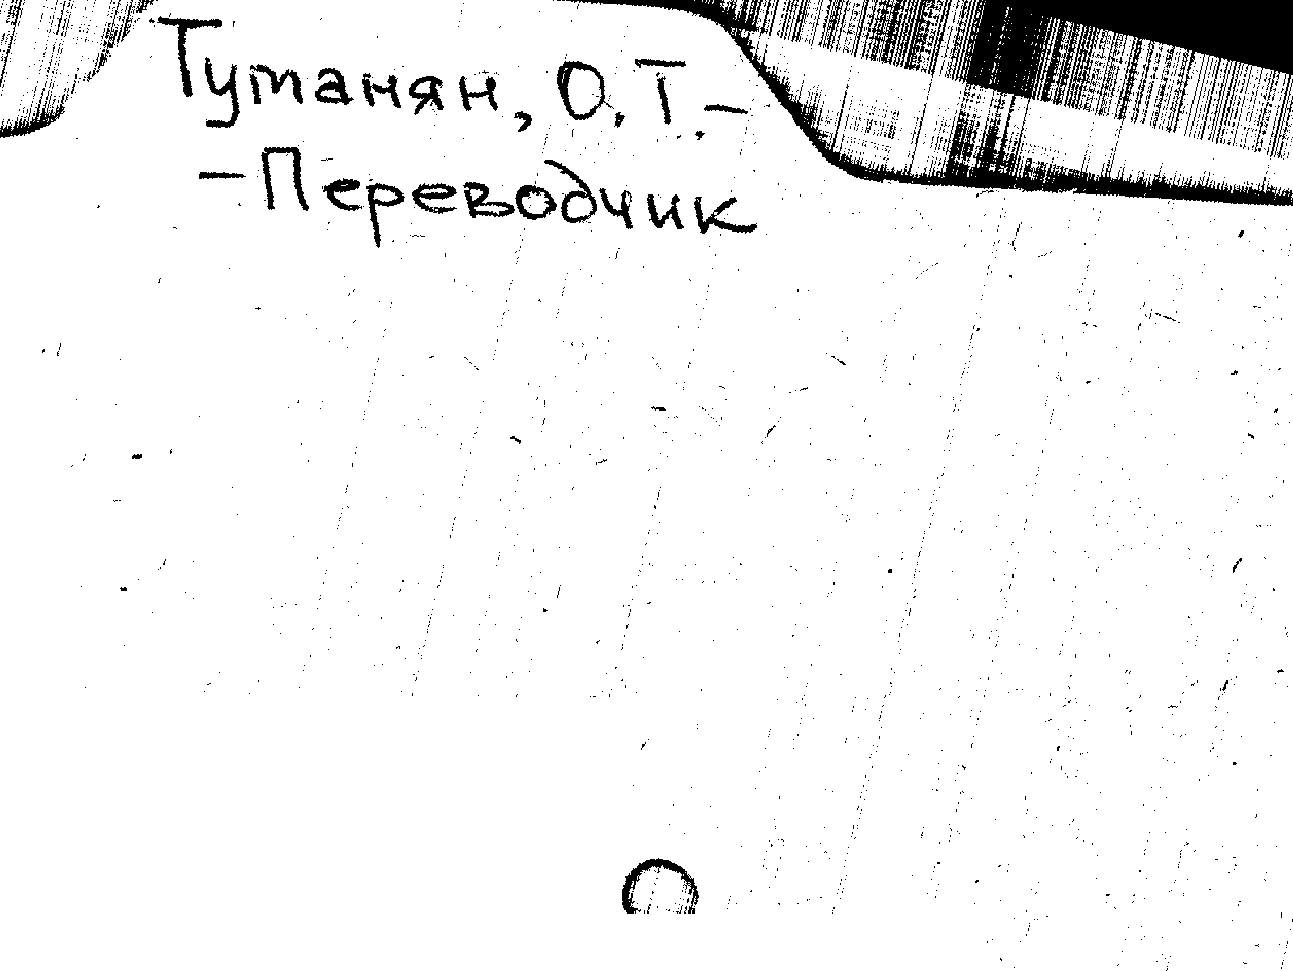 Туманян, О. Т. –
– Переводчик